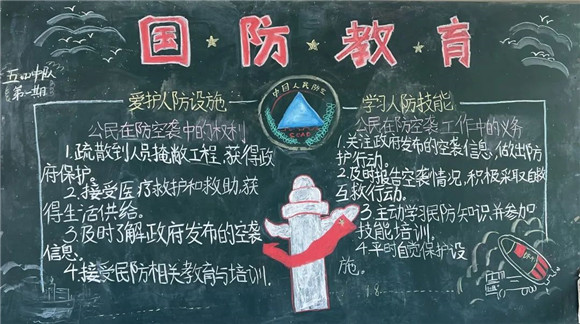 国防教育
五四中队
第一期
中国人民防空
爱护人防设施
公民在防空袭中的权利
1.疏散到人员掩蔽工程,获得政
府保护。
2.接受医疗救护和救助,获
得生活供给。
3.及时了解政府发布的空袭
信息。
4.接受民防相关教育与培训.
学习人防技能
公民在防空袭工作中的义务
1.关注政府发布的空袭信息,做出防
护行动。
2.及时报告空袭情况,积极采取自救
互救行动。
3.主动学习民防知识并参加
技能培训.
4.平时自觉保护设
施。